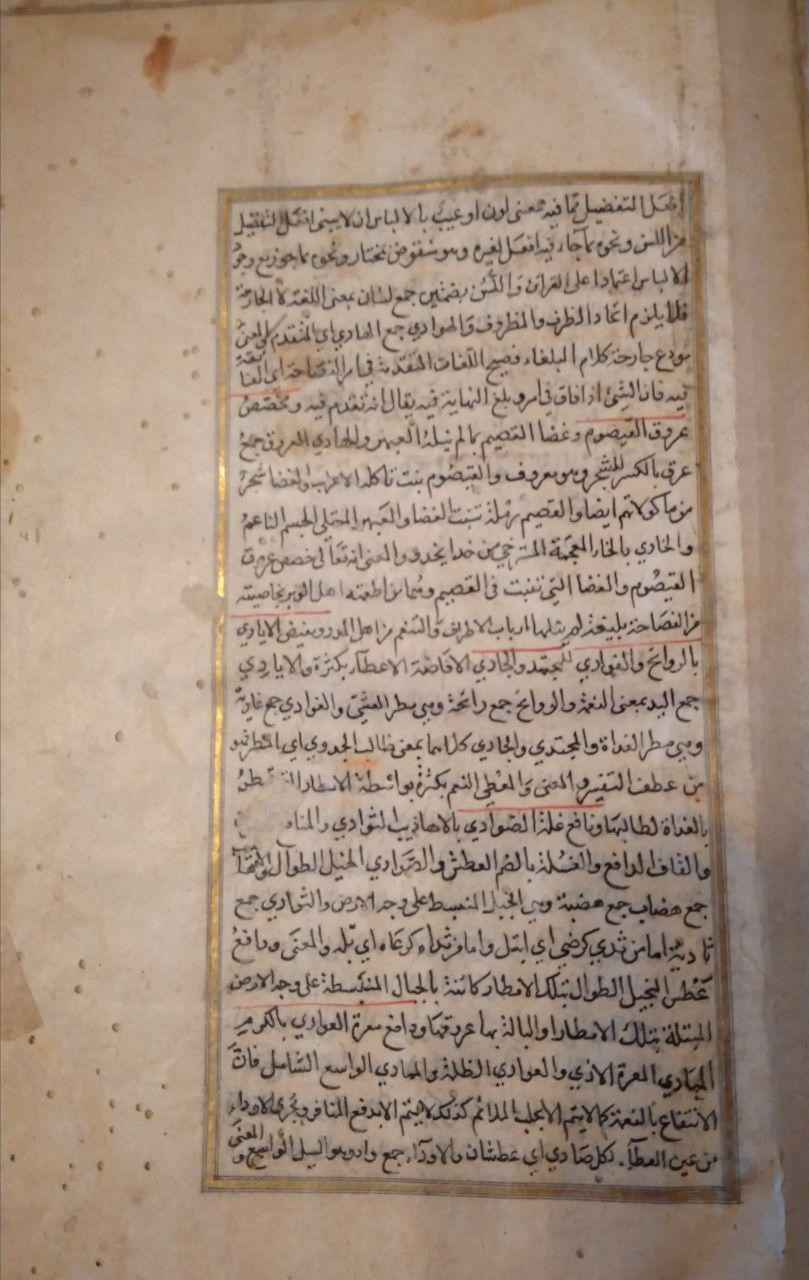 افعل التفضيل مما فيه معنى لون او عيب بالالباس ان لا يبنى افعل التفضيل
من اللسن ونحوه مما جاء فيه افعل لغيره وهو منقوض بمختار ونحوه مما جوزيع وجو
الالباس اعتمادا على القرائن واللسن بضمتين جمع لسان بمعنى اللغة لا الجارحة
فلا يلزم اتحاد الظرف والمظروف والهوادي جمع الهادي اي المتقدم
مودع جارحة كلام البلغاء فصيح اللغات المتقدمة في امر الفصاحة اي الفائقة
فيه فان الشئ اذا فاق في امر وبلغ النهاية فيه يقال انه تقدم فيه ومخصص
عروق القيصوم وغضا القصيم بما لم ينله العبهر والجادي العروق جمع
عرق بالكسر للشجر وهو معروف والقيصوم نبت تأكله الاعراب والغضا شجر
من مأكولاتهم ايضا والقصيم رملة تنبت الغضا والعبهر الممتلى الجسم الناعم
والخادي بالخاء المعجمة المسترخي من خدا يخدو والمعنى انه تعالى خصص عروق
القيصوم والغضا التي تنبت في القصيم ومما من اطعمة اهل الوبر بخاصيته
من الفصاحة بليغة لم ينلها ارباب الاطراف والتنعم من اهل المدر ومفيض الايادي
بالروائح والغوادي للمجتدي والجادي الافاضة الاعطاء بكثرة والايادي
جمع اليد بمعنى النعمة والروائح جمع رائحة وهي مطر العشي والغوادي جمع غادية
وهي مطر الغداة والمجتدي والجادي كلاهما بمعنى طالب الجدوى اي المطر فهو
من عطف التفسير والمعنى والمعطي النعم بكثرة بواسطة الامطار
بالغداة لطالبها وناقع غلة الصوادي بالاهاضيب الثوادي
والقاف الدافع والغلة بالضم العطش والصوادي النخيل الطوال
جمع هضاب جمع هضبة وهي الجبل المنبسط على وجه الارض والثوادي جمع
ثادية اما من ثدي كرضي اي ابتل واما من ثداه كرعاه اي بله والمعنى ودافع
عطش النخيل الطوال بتلك الامطار كائنة بالجبال المنبسطة على وجه الارض
المبتلة بتلك الامطار او البالة بها عروقها ودافع معرة العوادي بالكرم
المهادي المعرة الاذى والعوادي الظلمة والمهادي الواسع الشامل فان
الانتفاع بالنعمة كما لا يتم الا بجلب الملائم كذلك لا يتم الا بدفع المنافر ومجري الاوداء
من عين العطاء لكل صادي اي عطشان والاوداء جمع واد وهو السيل الواسع والمعنى